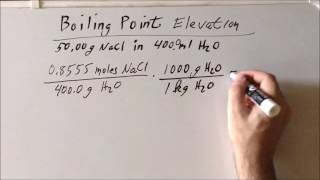 Boiling Point Elevation
50.00g NaCl in 400.0ml H₂O
0.8555 moles NaCl / 400.0g H₂O · 1000.g H₂O / 1 kg H₂O =